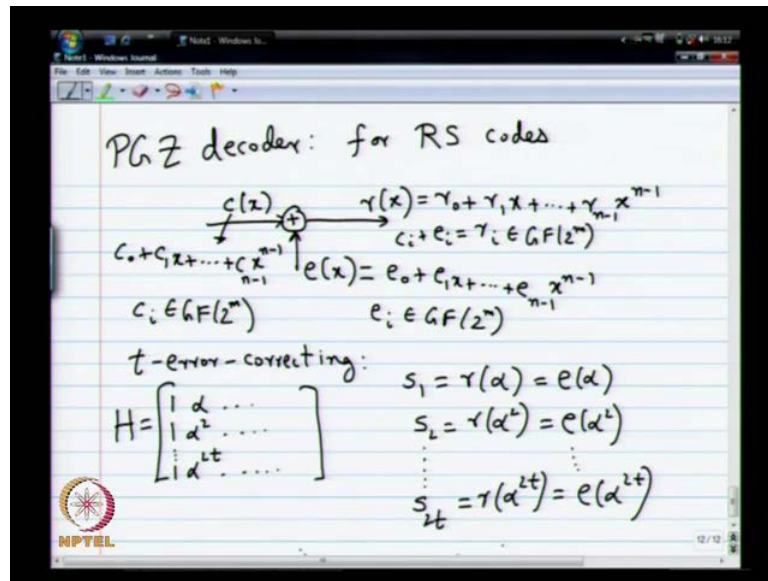 Note1 - Windows Jo...
16:12
Note1 - Windows Journal
File Edit View Insert Actions Tools Help
PGZ decoder: for RS codes
c(x) + r(x) = r₀ + r₁x + ⋯ + rₙ₋₁xⁿ⁻¹
cᵢ + eᵢ = rᵢ ∈ GF(2ᵐ)
c₀ + c₁x + ⋯ + cₙ₋₁xⁿ⁻¹ e(x) = e₀ + e₁x + ⋯ + eₙ₋₁xⁿ⁻¹
cᵢ ∈ GF(2ᵐ) eᵢ ∈ GF(2ᵐ)
t-error-correcting:
S₁ = r(α) = e(α)
H = [1 α ⋯
1 α² ⋯
⋮
1 α²ᵗ ⋯]
S₂ = r(α²) = e(α²)
⋮ ⋮
S₂ₜ = r(α²ᵗ) = e(α²ᵗ)
NPTEL
12/12